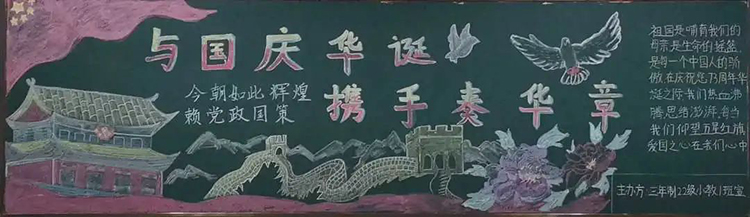 与国庆华诞
携手奏华章
今朝如此辉煌
赖党政国策
祖国是哺育我们的
母亲是生命的摇篮
是每一个中国人的骄
傲在庆祝您73周年华
诞之际我们热血沸
腾思绪澎湃每当
我们仰望五星红旗
爱国之心在我们心中
主办方:三年制22级小教1班宣